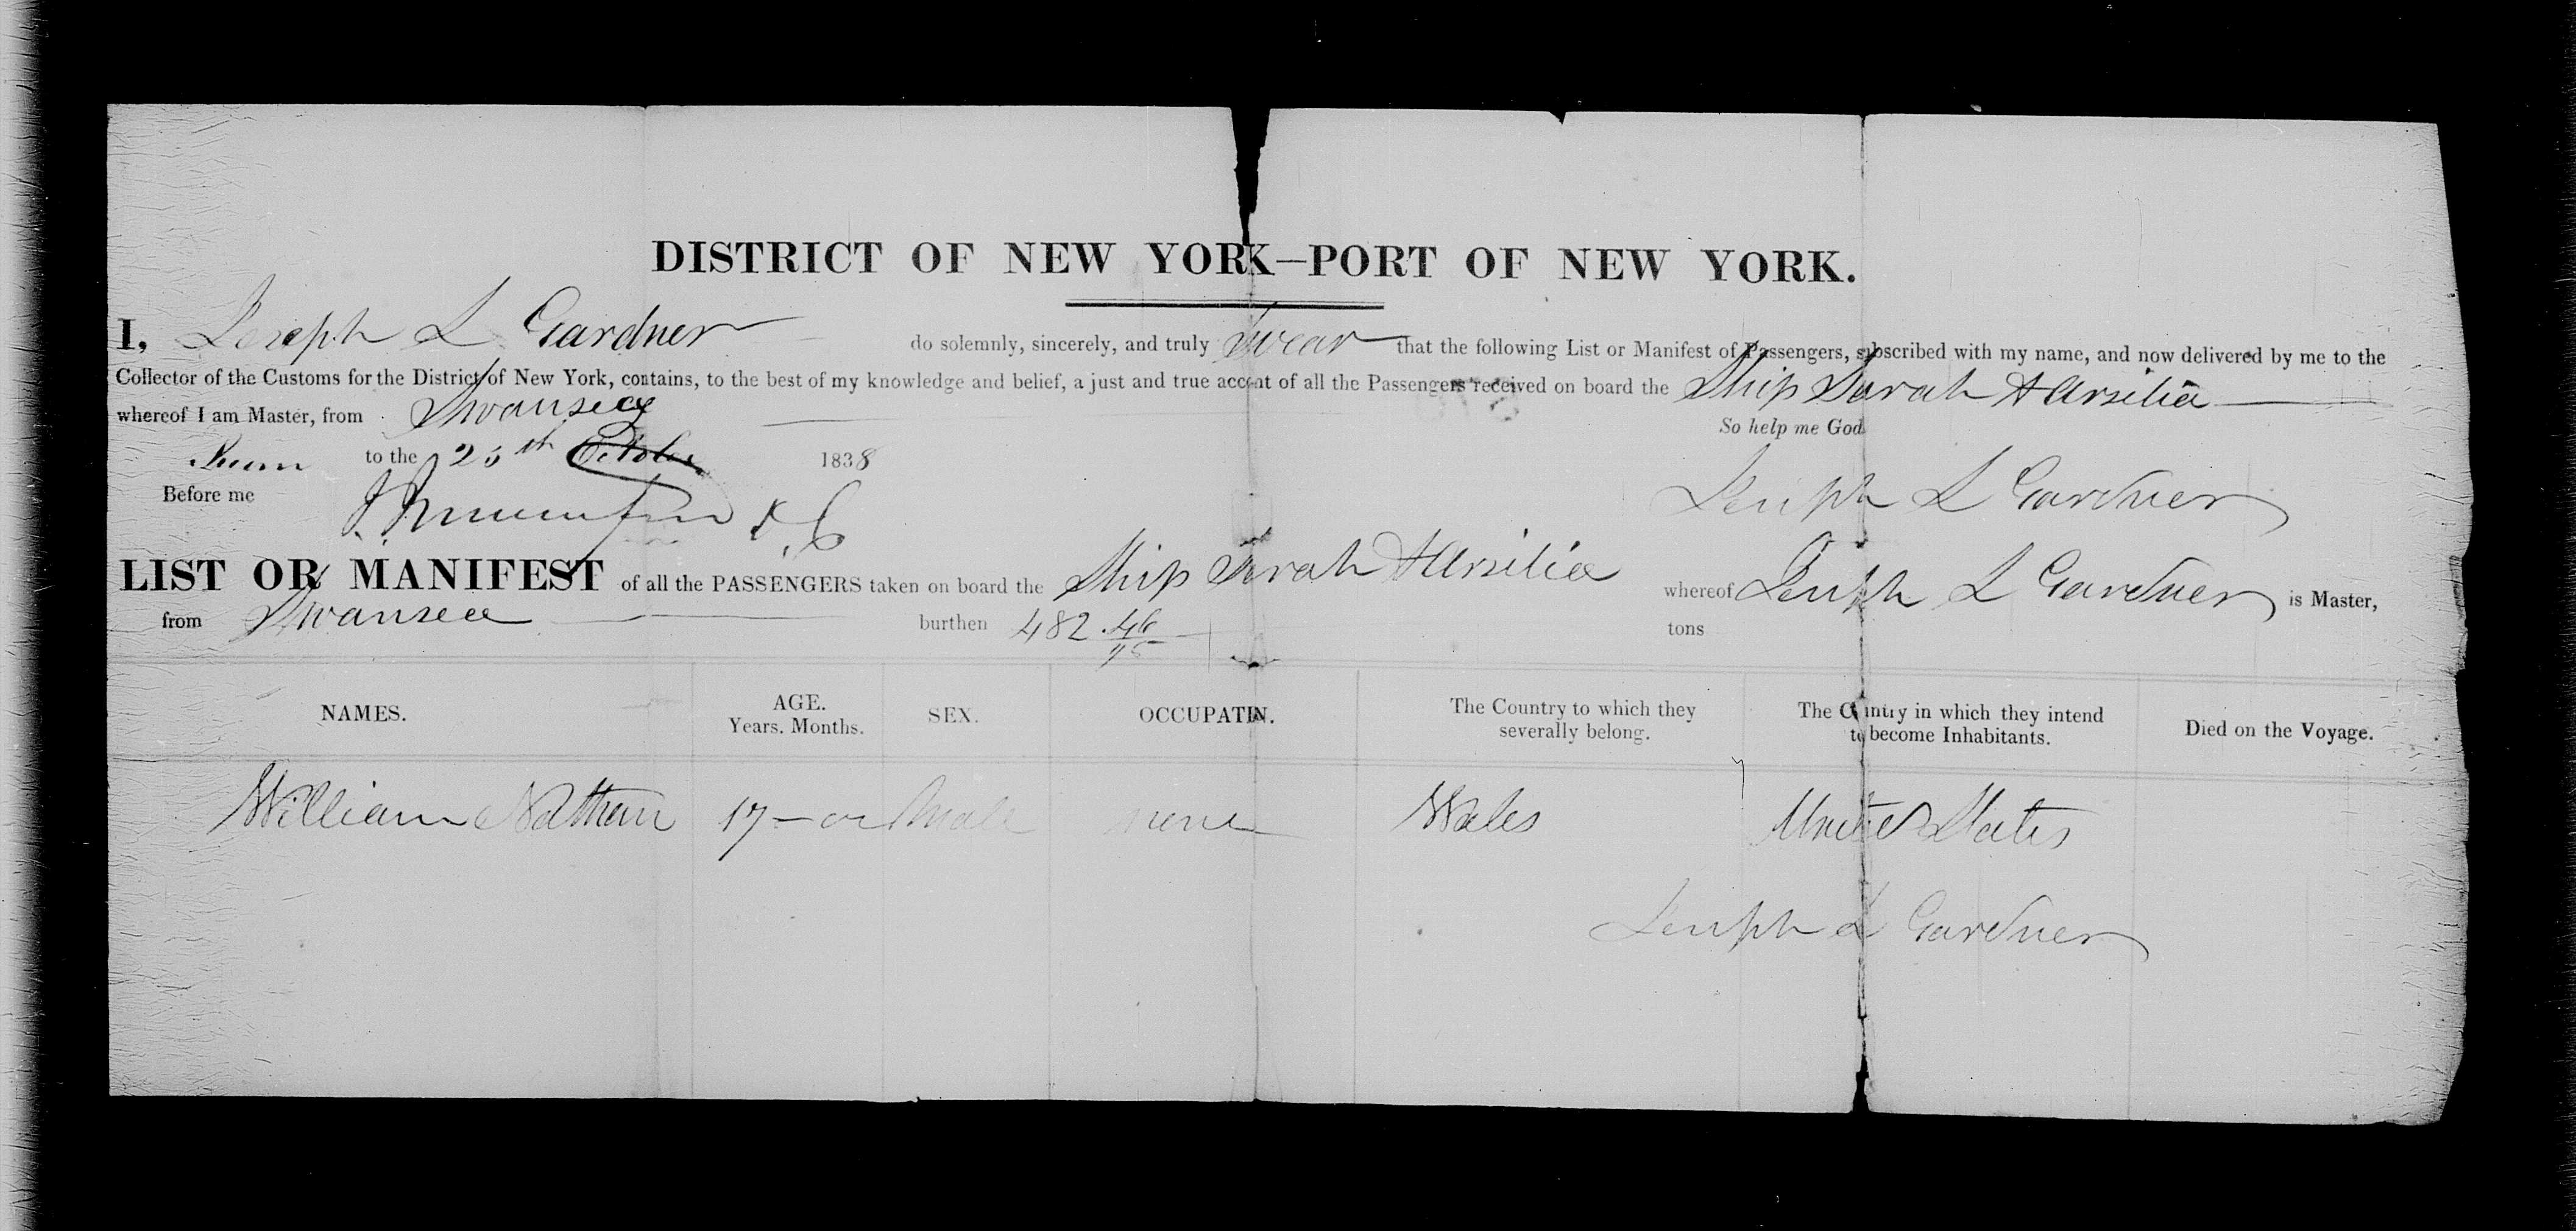 DISTRICT OF NEW YORK—PORT OF NEW YORK.
I, Joseph L Gardner do solemnly, sincerely, and truly Swear that the following List or Manifest of Passengers, subscribed with my name, and now delivered by me to the
Collector of the Customs for the District of New York, contains, to the best of my knowledge and belief, a just and true accont of all the Passengers received on board the Ship Sarah & Arsilia
whereof I am Master, from Swansea
So help me God
to the 25th October 1838
Joseph L Gardner
Before me
LIST OR MANIFEST of all the PASSENGERS taken on board the Ship Sarah & Arsilia whereof Joseph L Gardner is Master,
from Swansea burthen 482 46/95 tons
NAMES. AGE. Years. Months. SEX. OCCUPATIN. The Country to which they severally belong. The Country in which they intend to become Inhabitants. Died on the Voyage.
William Nathan 17 – Male none Wales United States
Joseph L Gardner